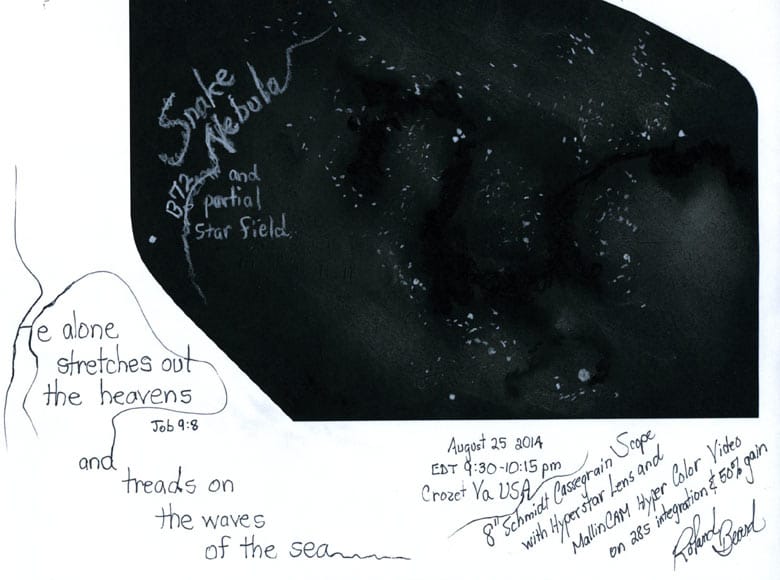 Snake
Nebula
B72 and
partial
star field
He alone
stretches out
the heavens
Job 9:8
and
treads on
the waves
of the sea
August 25 2014
EDT 9:30-10:15 pm
Crozet Va USA
8" Schmidt Cassegrain Scope
with Hyperstar Lens and
MallinCAM Hyper Color Video
on 28s integration & 50% gain
Roland Beard